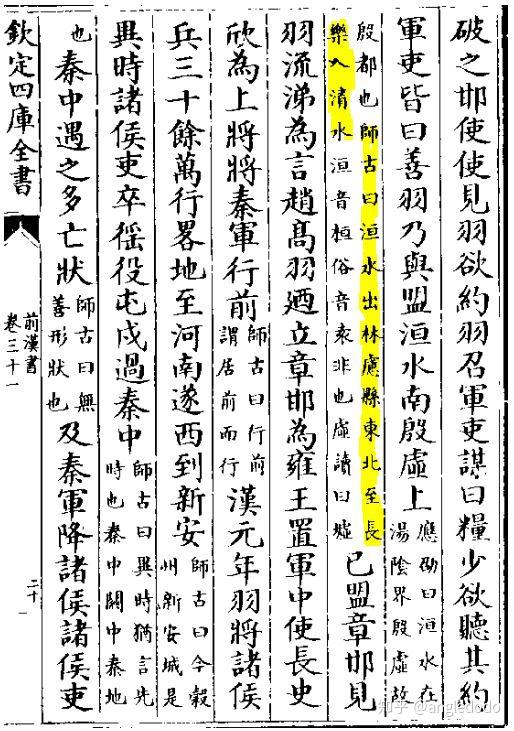 破之邯使使見羽欲約羽召軍吏謀曰糧少欲聽其約
軍吏皆曰善羽乃與盟洹水南殷虛上
應劭曰洹水在
湯陰界殷虛故
殷都也師古曰洹水出林慮縣東北至長
樂入清水洹音桓俗音袁非也虛讀曰墟
已盟章邯見
羽流涕為言趙髙羽廼立章邯為雍王置軍中使長史
欣為上將將秦軍行前
師古曰行前
謂居前而行
漢元年羽將諸侯
兵三十餘萬行畧地至河南遂西到新安
師古曰今榖
州新安城是
異時諸侯吏卒徭役屯戍過秦中
師古曰異時猶言先
時也秦中關中秦地
也
秦中遇之多亡狀
師古曰無
善形狀也
及秦軍降諸侯諸侯吏
欽定四庫全書
前漢書
卷三十一
二十
知乎